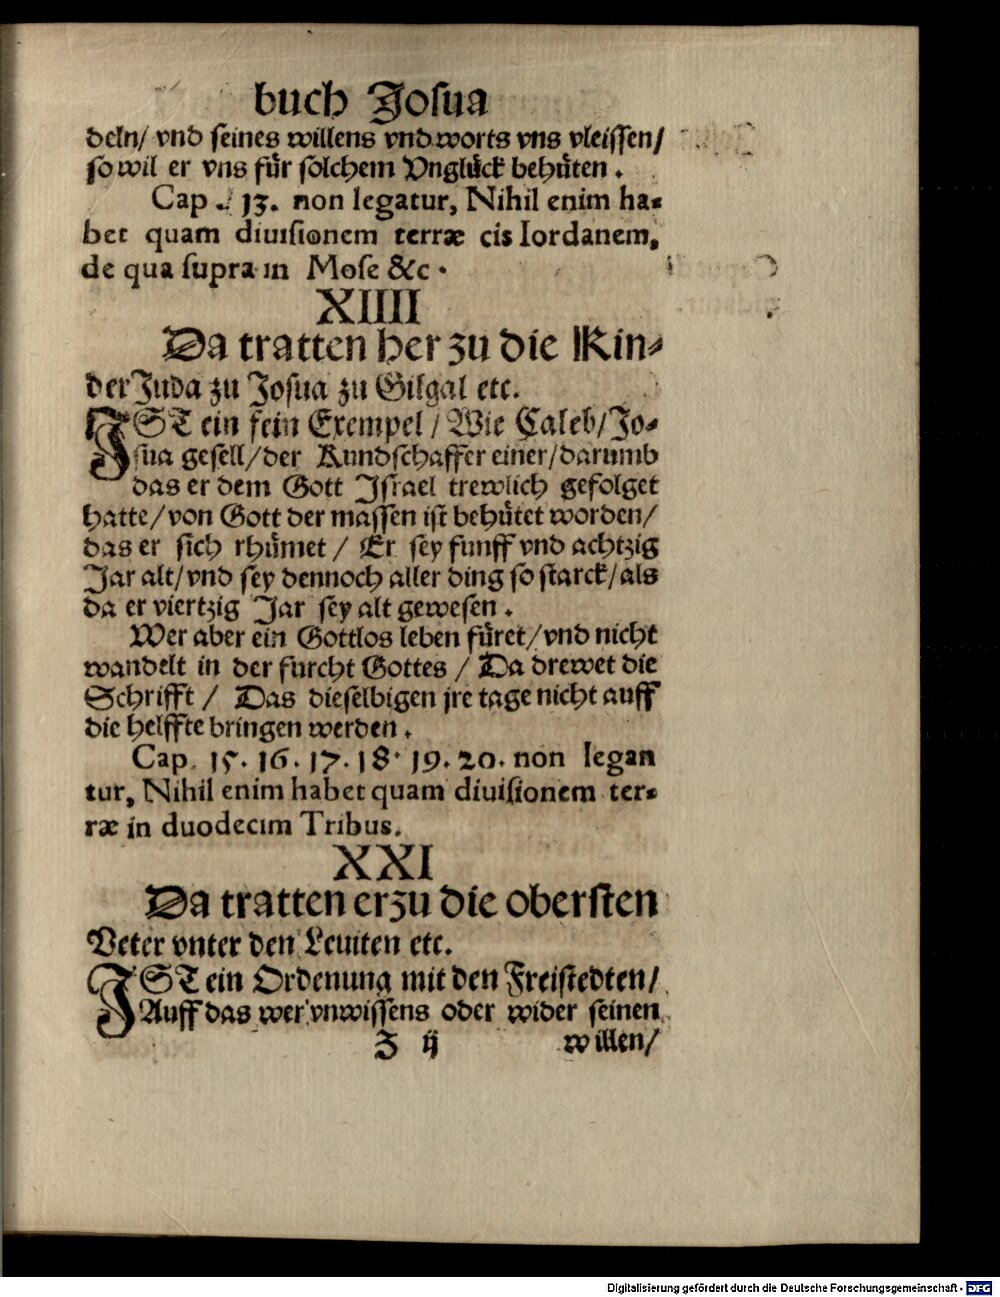 buch Josua
deln/ vnd seines willens vnd worts vns vleissen/
so wil er vns für solchem Vnglück behüten.
Cap. 13. non legatur, Nihil enim ha⸗
bet quam diuisionem terræ cis Iordanem,
de qua supra in Mose &c.
XIIII
Da tratten her zu die Kin⸗
der Juda zu Josua zu Gilgal etc.
JST ein fein Exempel / Wie Caleb/Jo⸗
sua gesell/der Kundschaffer einer/darumb
das er dem Gott Jsrael trewlich gefolget
hatte/von Gott der massen ist behütet worden/
das er sich rhümet / Er sey funff vnd achtzig
Jar alt/vnd sey dennoch aller ding so starck/als
da er viertzig Jar sey alt gewesen.
Wer aber ein Gottlos leben füret/vnd nicht
wandelt in der furcht Gottes / Da drewet die
Schrifft / Das dieselbigen jre tage nicht auff
die helffte bringen werden.
Cap. 15. 16. 17. 18. 19. 20. non legan
tur, Nihil enim habet quam diuisionem ter⸗
ræ in duodecim Tribus.
XXI
Da tratten erzu die obersten
Veter vnter den Leuiten etc.
JST ein Ordenung mit den Freistedten/
Auff das wer vnwissens oder wider seinen
Z ij willen/
Digitalisierung gefördert durch die Deutsche Forschungsgemeinschaft - DFG